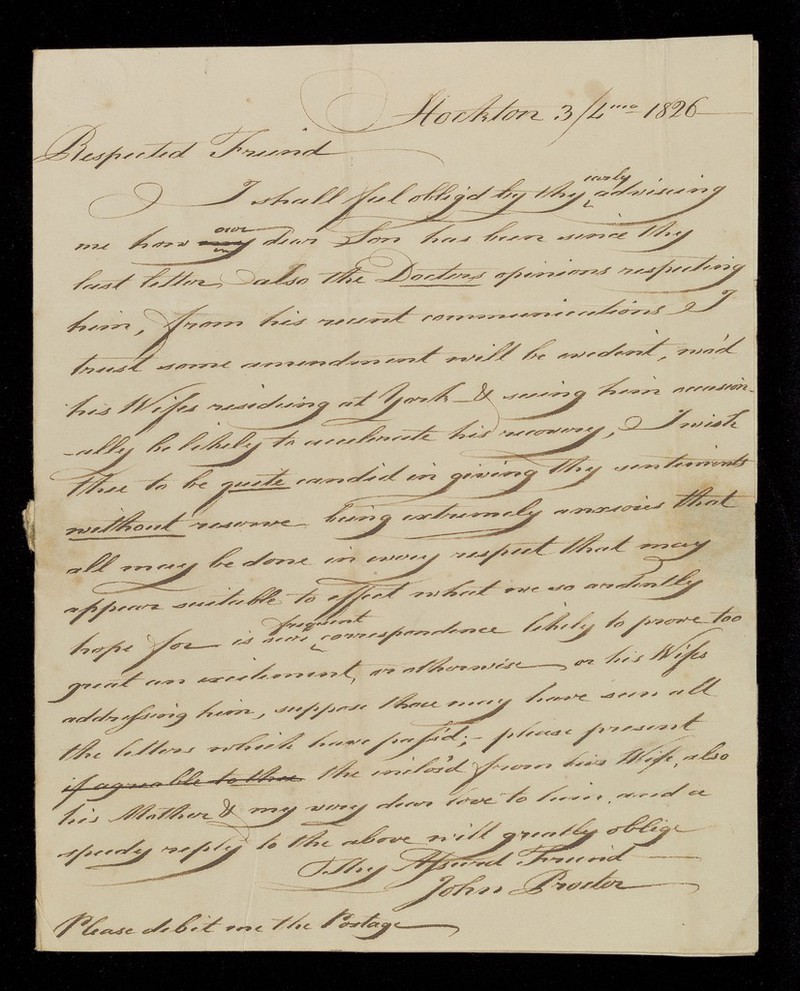 Stockton 3/4mo 1826
Respected Friend
early
I shall feel oblig'd by thy advising
our
me how my dear Son has been since thy
last letter, also the Doctors opinions respecting
him, from his recent communications I
trust some amendment will be evident, wo'd
his Wifes residing at York & seeing him occasion-
-ally be likely to accelerate his recovery, I wish
thee to be quite candid in giving thy sentiments
without reserve being extremely anxious that
all may be done in every respect that may
appear suitable to effect what we so ardently
frequent
hope for is our correspondence likely to prove too
great an excitement, or otherwise or his Wifes
addressing him, suppose thou may have seen all
the letters which have pass'd; - please present
if agreable to thee the inclos'd from his Wife, also
his Mother & my very dear love to him, and a
speedy reply to the above will greatly oblige
Thy Assured Friend
John Procter
Please debit me the Postage